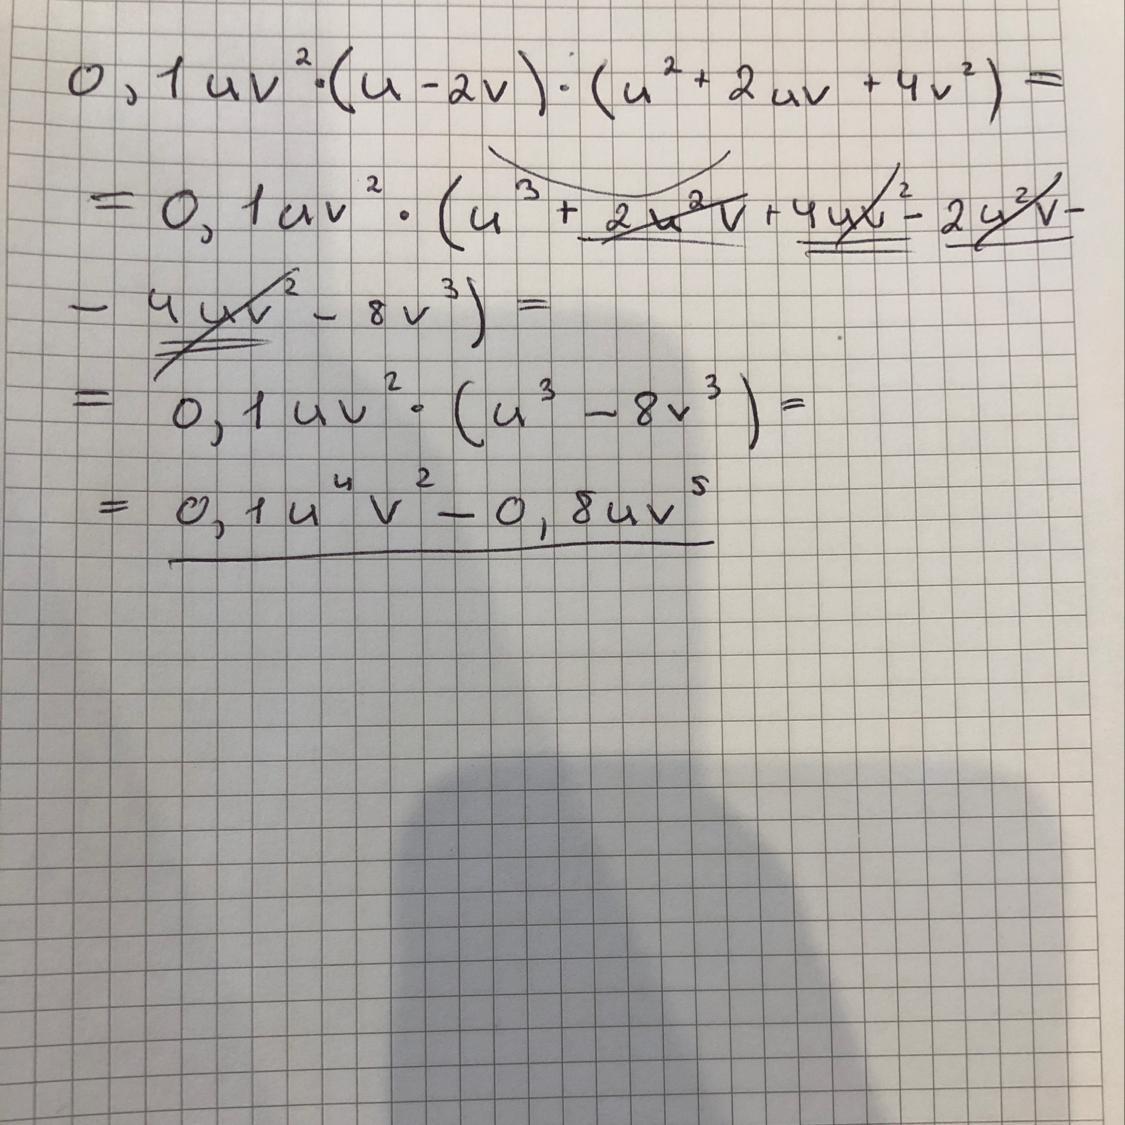 0,1uv²·(u-2v)·(u²+2uv+4v²)=
=0,1uv²·(u³+2u²v+4uv²-2u²v-
-4uv²-8v³)=
=0,1uv²·(u³-8v³)=
=0,1u⁴v²-0,8uv⁵